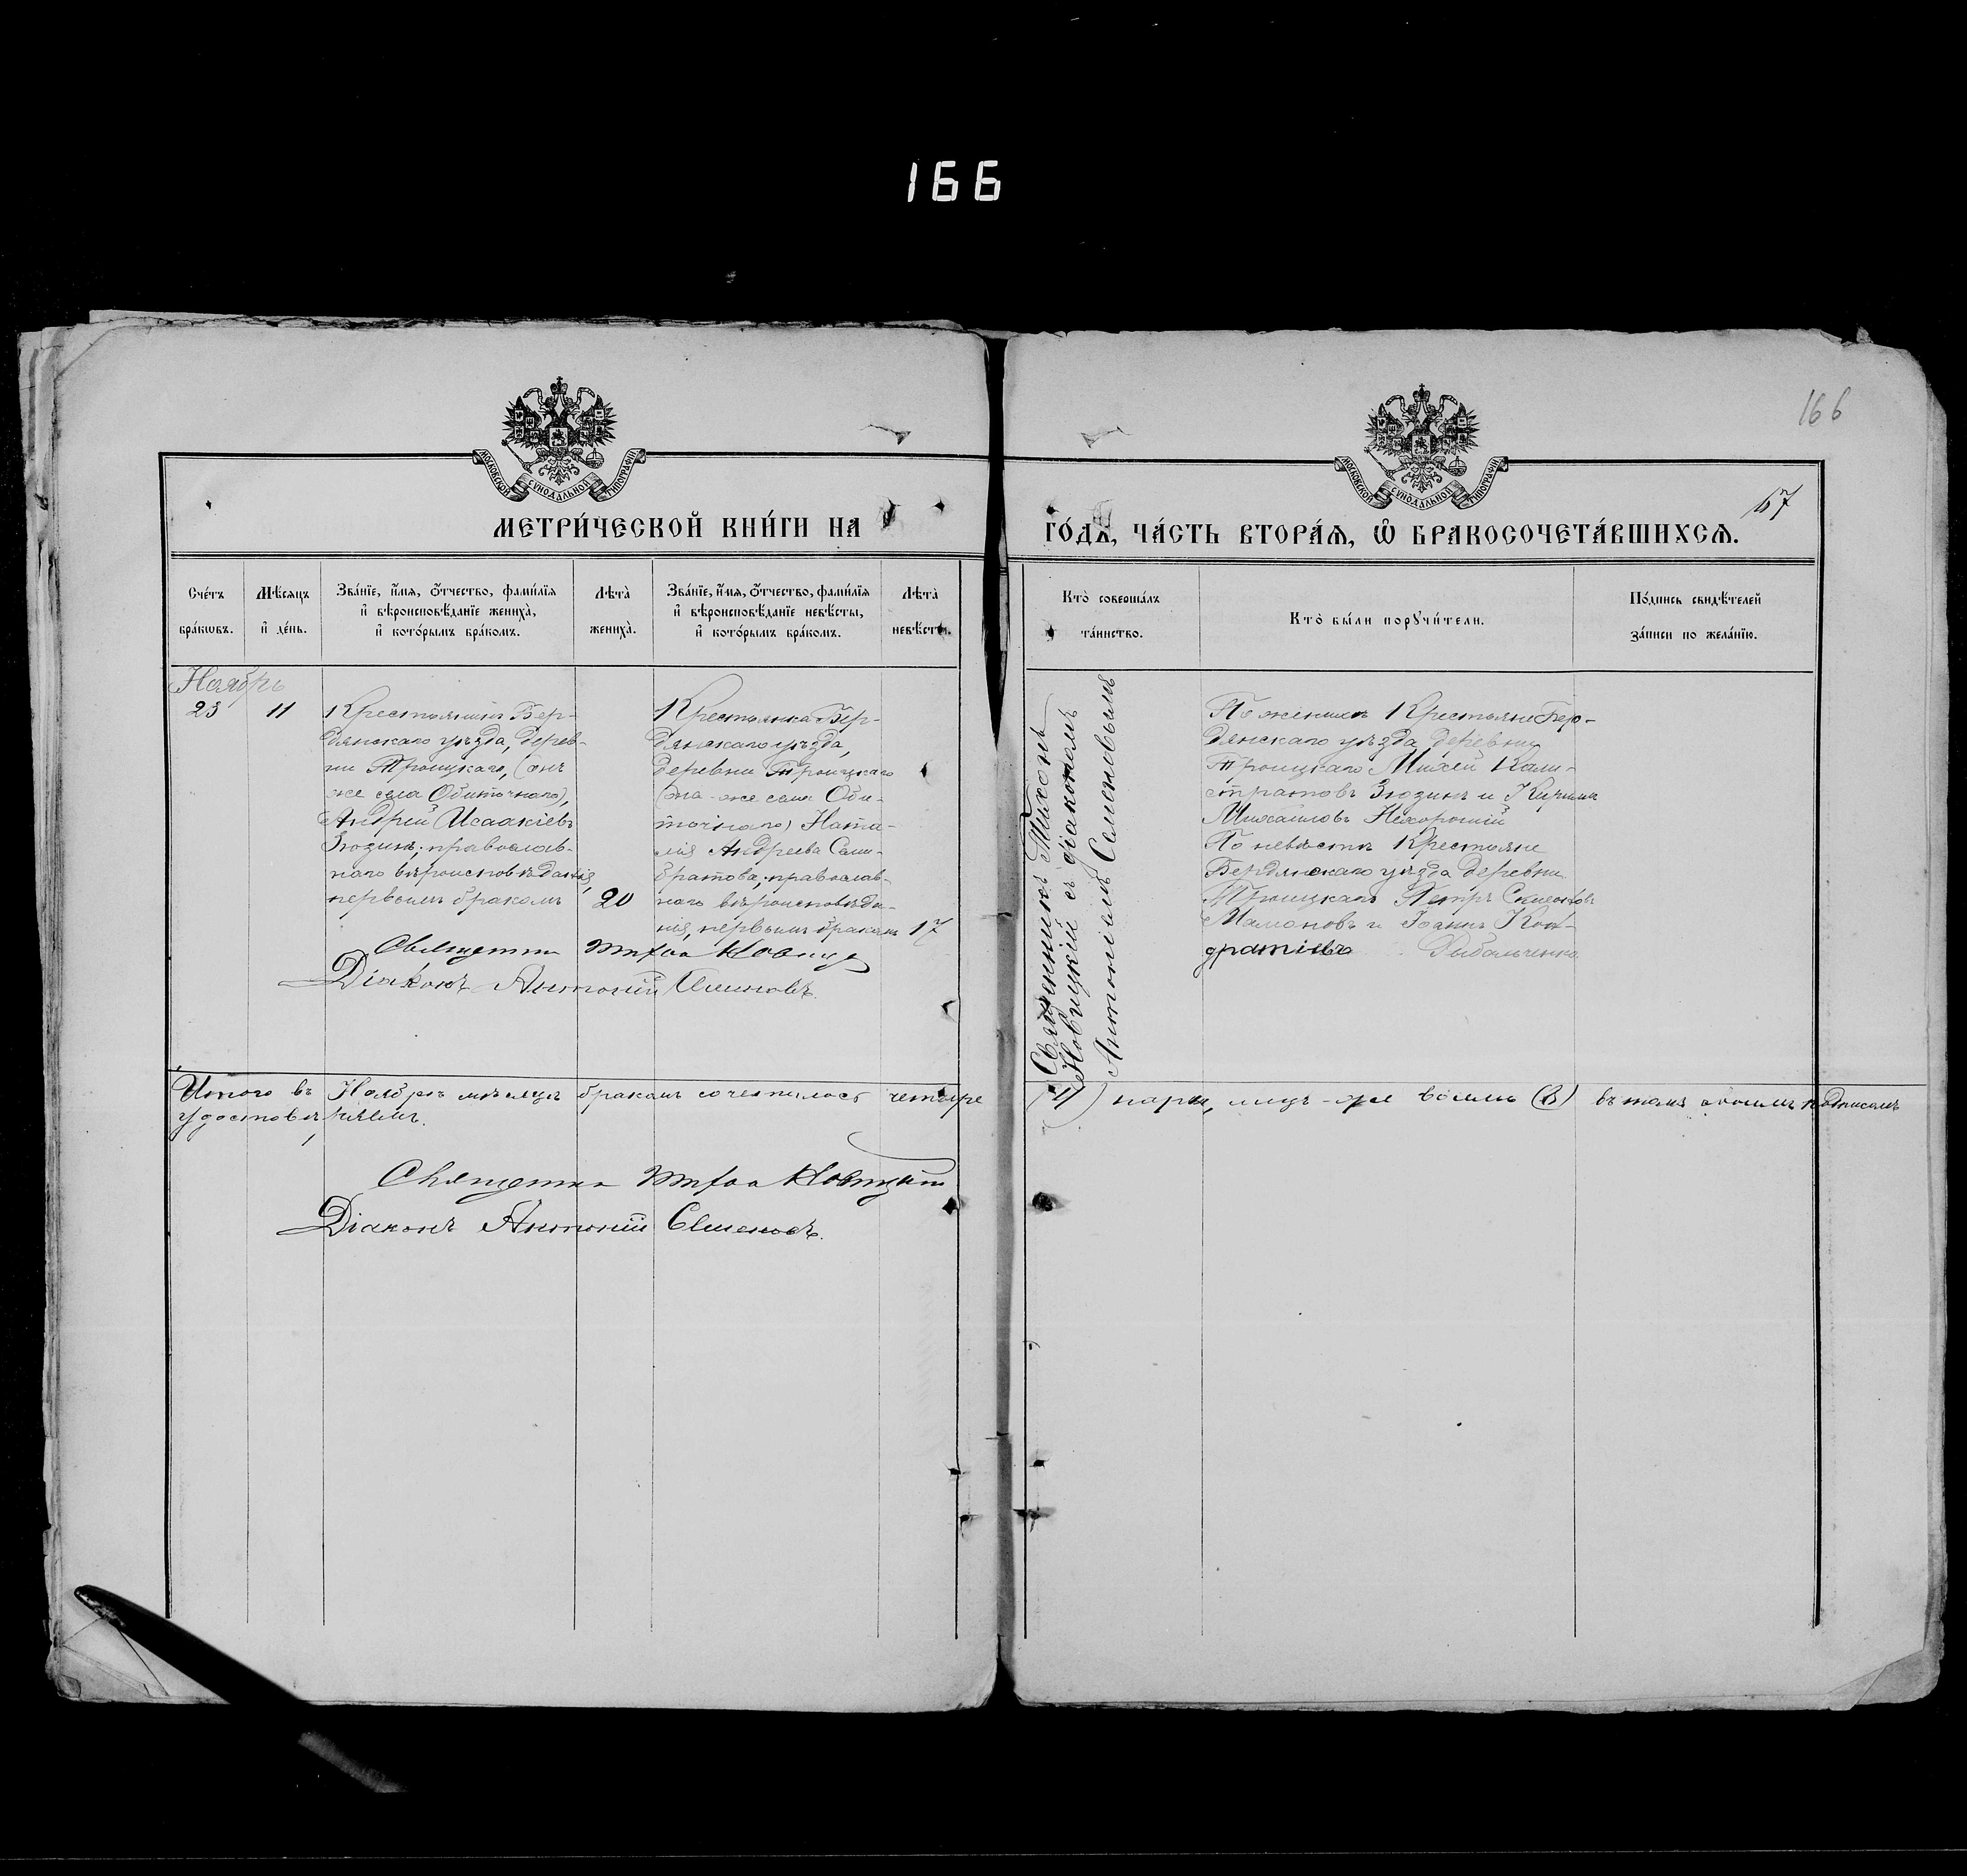 166
166
МОСКОВСКОЙ СУНОДАЛЬНОЙ ТИПОГРАФІИ
МОСКОВСКОЙ СУНОДАЛЬНОЙ ТИПОГРАФІИ
67
МЕТРИ́ЧЕСКОЙ КНИ́ГИ НА
ГО́ДЪ, ЧА́СТЬ ВТОРА́Ѧ, Ѽ БРАКОСОЧЕТА́ВШИХСѦ.
Сче́тъ
бра́кѡвъ.
Мѣ́сяцъ
и҆ де́нь.
Зва́нїе, и҆́мя, ѻ҆́тчество, фами́лїя
и҆ вѣроисповѣ́данїе жениха̀,
и҆ кото́рымъ бра́комъ.
Лѣта̀
жениха̀.
Зва́нїе, и҆́мя, ѻ҆́тчество, фами́лїя
и҆ вѣроисповѣ́данїе невѣ́сты,
и҆ кото́рымъ бра́комъ.
Лѣта̀
невѣ́сты.
Кто̀ соверша́лъ
та́инство.
Кто̀ бы́ли порꙋчи́тели.
По́дпись свидѣ́телей
за́писи по жела́нїю.
Ноябрь
23
11
Крестьянинъ Бер-
дянскаго уѣзда, дерев-
ни Троицкаго, (онъ
же села Обиточнаго),
Андрей Исаакіевъ
Зюзинъ, православ-
наго вѣроисповѣданія,
первымъ бракомъ
20
Крестьянка Бер-
дянскаго уѣзда,
деревни Троицкаго
(она-же села Оби-
точнаго) Ната-
лія Андреева Сели-
братова, православ-
наго вѣроисповѣда-
нія, первымъ бракомъ
17
Священникъ Тихонъ
Новицкій съ діакономъ
Антоніемъ Семеновымъ
По женихѣ Крестьяне Бер-
дянскаго уѣзда деревни
Троицкаго Михей Кали-
стратовъ Зюзинъ и Кирилъ
Михаиловъ Нехорошій
По невѣстѣ Крестьяне
Бердянскаго уѣзда деревни
Троицкаго Петръ
Мамоновъ и Іоаннъ Кон-
дратіевъ Рыбальченко
Священникъ Тихонъ Новицкій
Діаконъ Антоній Семеновъ.
Итого въ Ноябрѣ мѣсяцѣ бракомъ сочеталось четыре (4) пары, лицъ-же восемь (8) въ томъ своимъ подписомъ
удостовѣряемъ.
Священникъ Тихонъ Новицкій
Діаконъ Антоній Семеновъ.